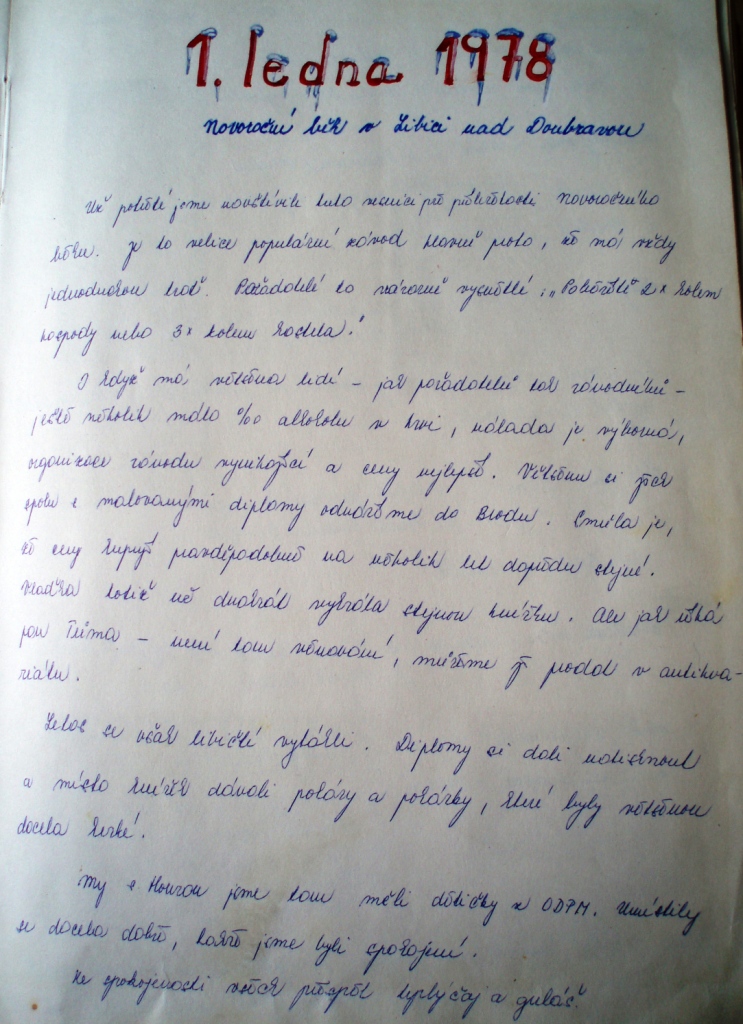 1. ledna 1978
Novoroční běh v Libici nad Doubravou
Už potřetí jsme navštívili tuto vesnici při příležitosti Novoročního
běhu. Je to velice populární závod hlavně proto, že má vždy
jednoduchou trať. Pořadatelé to názorně vysvětlí: "Poběžíte 2x kolem
hospody nebo 3x kolem kostela."
I když má většina lidí - jak pořadatelů tak závodníků -
ještě několik málo ‰ alkoholu v krvi, nálada je výborná,
organizace závodu vynikající a ceny nejlepší. Většinu si jich
spolu s malovanými diplomy odnášíme do Brodu. Smůla je,
že ceny kupují pravděpodobně na několik let dopředu stejné.
Vlaďka totiž už dvakrát vyhrála stejnou knížku. Ale jak říká
pan Tůma - není tam věnování, můžeme ji prodat v antikva-
riátu.
Letos se však libičtí vytáhli. Diplomy si dali natisknout
a místo knížek dávali poháry a pohárky, které byly většinou
docela hezké.
My s Honzou jsme tam měli dětičky z ODPM. Umístily
se docela dobře, takže jsme byli spokojeni.
Ke spokojenosti všech přispěl teplý čaj a guláš.